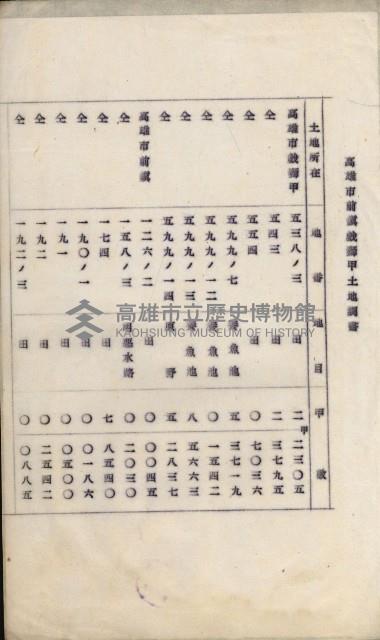 高雄市前鎮戲獅甲土地調書
土地所在 地番 地目 甲數
高雄市戲獅甲 五三八ノ三 田 二甲二三〇五
仝 五四三 田 二 三七九五
仝 五五四 田 〇 七〇三六
仝 五九九ノ七 養魚池 五 三七一九
仝 五九九ノ一二 養魚池 〇 一五四二
仝 五九九ノ一三 養魚池 八 五六六三
仝 五九九ノ一四 原野 五 二八三七
高雄市前鎮 一二六ノ二 田 〇 〇〇四五
仝 一五八ノ三 用惡水路 〇 二〇三〇
仝 一七四 田 七 八五四〇
仝 一九〇ノ一 田 〇 〇一八六
仝 一九一 田 〇 〇五〇〇
仝 一九二 田 〇 二五四二
仝 一九二ノ三 田 〇 〇八八五
高雄市立歷史博物館
KAOHSIUNG MUSEUM OF HISTORY